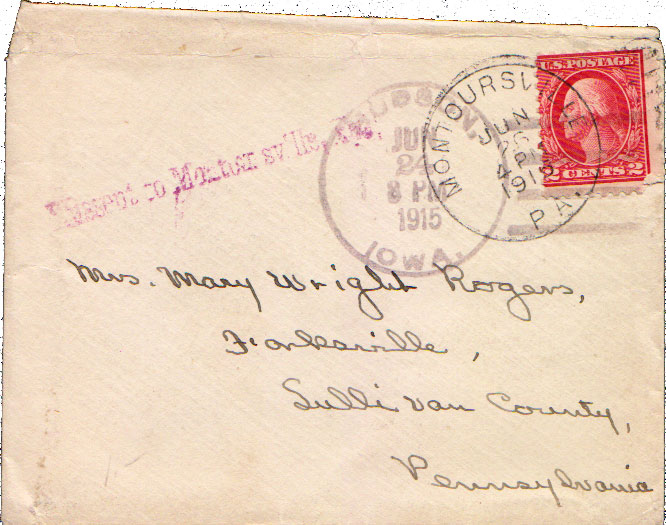 U.S. POSTAGE
2 CENTS 2
MONTOURSVILLE
JUN
1915
PA.
JUN
24
8 PM
1915
IOWA.
to Montoursville,
Mrs. Mary Wright Rogers,
Forksville,
Sullivan County,
Pennsylvania